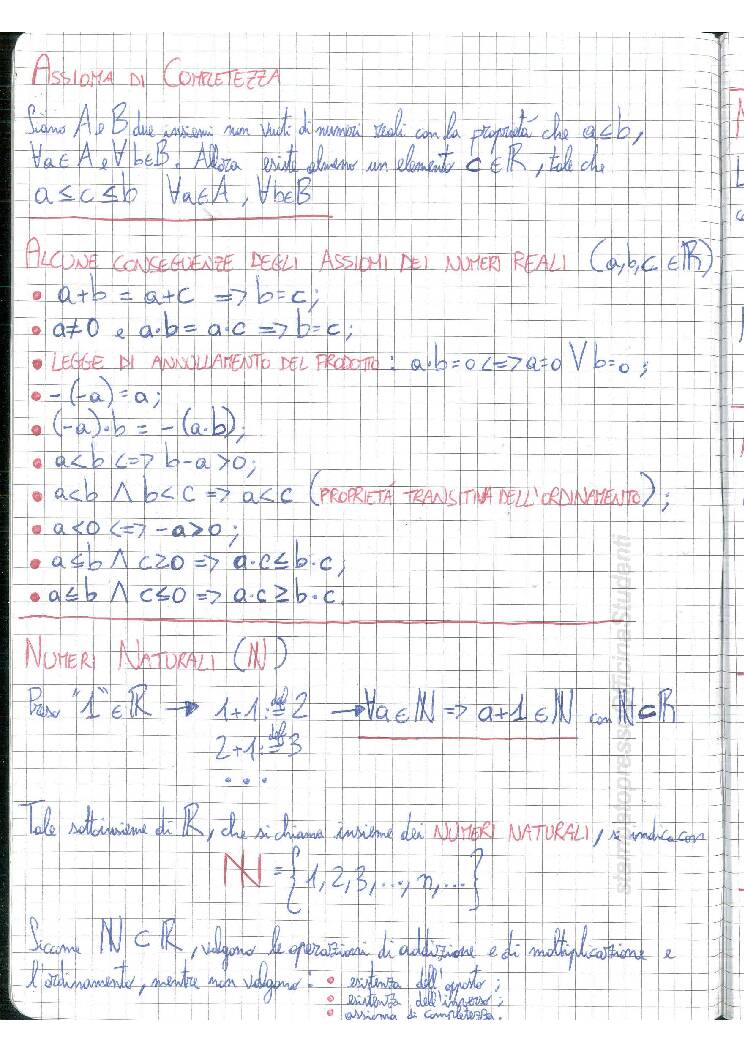 ASSIOMA DI COMPLETEZZA
Siano A e B due insiemi non vuoti di numeri reali con la proprietà che a≤b,
∀a∈A e ∀b∈B. Allora esiste almeno un elemento c∈ℝ, tale che
a≤c≤b ∀a∈A, ∀b∈B
ALCUNE CONSEGUENZE DEGLI ASSIOMI DEI NUMERI REALI (a,b,c∈ℝ)
• a+b = a+c => b=c;
• a≠0 e a·b = a·c => b=c;
• LEGGE DI ANNULLAMENTO DEL PRODOTTO: a·b=0 <=> a=0 ∨ b=0;
• -(-a)=a;
• (-a)·b = -(a·b);
• a<b <=> b-a>0;
• a<b ∧ b<c => a<c (PROPRIETÀ TRANSITIVA DELL'ORDINAMENTO);
• a<0 <=> -a>0;
• a≤b ∧ c≥0 => a·c≤b·c;
• a≤b ∧ c≤0 => a·c≥b·c.
NUMERI NATURALI (ℕ)
Preso "1"∈ℝ → 1+1:≝2 → ∀a∈ℕ => a+1∈ℕ con ℕ⊂ℝ
2+1:≝3
...
Tale sottoinsieme di ℝ, che si chiama insieme dei NUMERI NATURALI, si indica con
ℕ={1,2,3,...,n,...}
Siccome ℕ⊂ℝ, valgono le operazioni di addizione e di moltiplicazione e
l'ordinamento, mentre non valgono: • esistenza dell'opposto;
• esistenza dell'inverso;
• assioma di completezza.